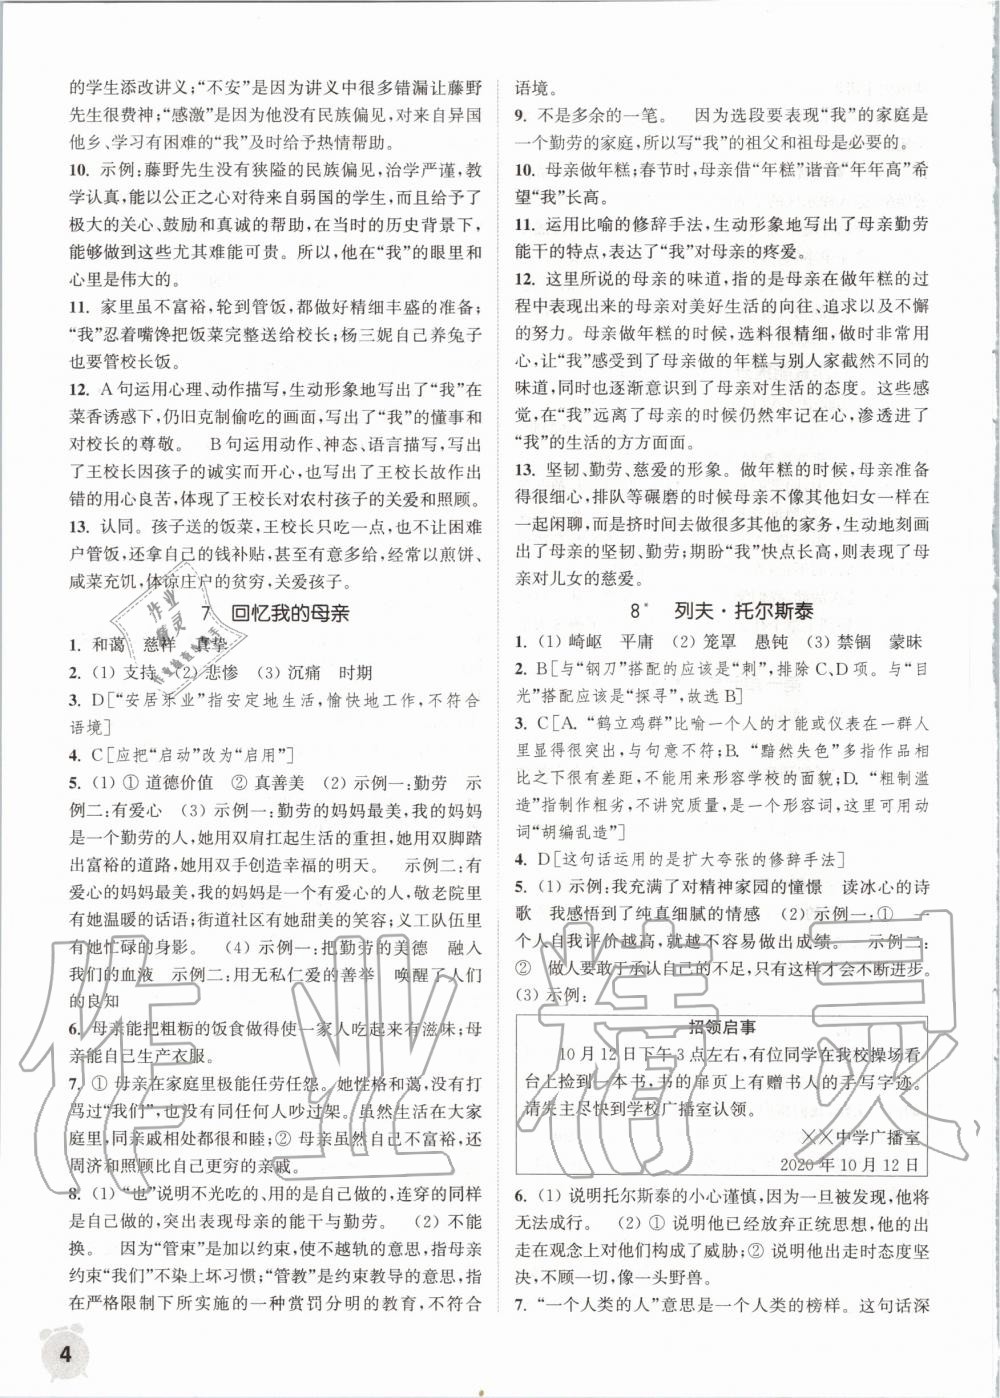 的学生添改讲义;“不安”是因为讲义中很多错漏让藤野
先生很费神;“感激”是因为没有民族偏见,对来自异国
他乡、学习有困难的“我”及时给予热情帮助。
10. 示例:藤野先生没有狭隘的民族偏见,治学严谨,教
学认真,能以公正之心对待来自弱国的学生,而且给予了
极大的关心、鼓励和真诚的帮助,在当时的历史背景下,
能够做到这些尤其难能可贵。所以,他在“我”的眼里和
心里是伟大的。
11. 家里虽不富裕,轮到管饭,都做好精细丰盛的准备;
“我”忍着嘴馋把饭菜完整送给校长;杨三妮自己养兔子
也要管校长饭。
12. A句运用心理、动作描写,生动形象地写出了“我”在
菜香诱惑下,仍旧克制偷吃的画面,写出了“我”的懂事和
对校长的尊敬。 B句运用动作、神态、语言描写,写出
了王校长因孩子的诚实而开心,也写出了王校长故作出
错的用心良苦,体现了王校长对农村孩子的关爱和照顾。
13. 认同。孩子送的饭菜,王校长只吃一点,也不让困难
户管饭,还拿自己的钱补贴,甚至有意多给,经常以煎饼、
咸菜充饥,体谅庄户的贫穷,关爱孩子。
7 回忆我的母亲
1. 和蔼 慈祥 真挚
2. (1)支持 (2)悲惨 (3)沉痛 时期
3. D[“安居乐业”指安定地生活,愉快地工作,不符合
语境]
4. C[应把“启动”改为“启用”]
5. (1)①道德价值 ②真善美 (2)示例一:勤劳 示
例二:有爱心 (3)示例一:勤劳的妈妈最美,我的妈妈
是一个勤劳的人,她用双肩扛起生活的重担,她用双脚踏
出富裕的道路,她用双手创造幸福的明天。 示例二:有
爱心的妈妈最美,我的妈妈是一个有爱心的人,敬老院里
有她温暖的话语;街道社区有她甜美的笑容;义工队伍里
有她忙碌的身影。 (4)示例一:把勤劳的美德 融入
我们的血液 示例二:用无私仁爱的善举 唤醒了人们
的良知
6. 母亲能把粗粝的饭食做得使一家人吃起来有滋味;母
亲能自己生产衣服。
7. ①母亲在家庭里极能任劳任怨。她性格和蔼,没有打
骂过“我们”,也没有同任何人吵过架。虽然生活在大家
庭里,同亲戚相处都很和睦;②母亲虽然自己不富裕,还
周济和照顾比自己更穷的亲戚。
8. (1)“也”说明不光吃的、用的是自己做的,连穿的同样
是自己做的,突出表现母亲的能干与勤劳。 (2)不能
换。 因为“管束”是加以约束,使不越轨的意思,指母亲
约束“我们”不染上坏习惯;“管教”是约束教导的意思,指
在严格限制下所实施的一种赏罚分明的教育,不符合
语境。
9. 不是多余的一笔。 因为选段要表现“我”的家庭是
一个勤劳的家庭,所以写“我”的祖父和祖母是必要的。
10. 母亲做年糕;春节时,母亲借“年糕”谐音“年年高”希
望“我”长高。
11. 运用比喻的修辞手法,生动形象地写出了母亲勤劳
能干的特点,表达了“我”对母亲的疼爱。
12. 这里所说的母亲的味道,指的是母亲在做年糕的过
程中表现出来的母亲对美好生活的向往、追求以及不懈
的努力。母亲做年糕的时候,选料很精细,做时非常用
心,让“我”感受到了母亲做的年糕与别人家截然不同的
味道,同时也逐渐意识到了母亲对生活的态度。这些感
觉,在“我”远离了母亲的时候仍然牢记在心,渗透进了
“我”的生活的方方面面。
13. 坚韧、勤劳、慈爱的形象。做年糕的时候,母亲准备
得很细心,排队等碾磨的时候母亲不像其他妇女一样在
一起闲聊,而是挤时间去做很多其他的家务,生动地刻画
出了母亲的坚韧、勤劳;期盼“我”快点长高,则表现了母
亲对儿女的慈爱。
8* 列夫·托尔斯泰
1. (1)崎岖 平庸 (2)笼罩 愚钝 (3)禁锢 蒙昧
2. B[与“钢刀”搭配的应该是“刺”,排除C、D项。与“目
光”搭配应该是“探寻”,故选B]
3. C[A.“鹤立鸡群”比喻一个人的才能或仪表在一群人
里显得很突出,与句意不符;B.“黯然失色”多指事物相
比之下很有差距,不能来形容学校的面貌;D.“粗制滥
造”指制作粗劣,不讲究质量,是一个形容词,这里可用动
词“胡编乱造”]
4. D[这句话运用的是扩大夸张的修辞手法]
5. (1)示例:我充满了对精神家园的憧憬 读冰心的诗
歌 我感悟到了纯真细腻的情感 (2)示例一:① 一
个人自我评价越高,就越不容易做出成绩。 示例二:
② 做人要敢于承认自己的不足,只有这样才会不断进步。
(3)示例:
招领启事
10月12日下午3点左右,有位同学在我校操场看
台上捡到一本书,书的扉页上有赠书人的手写字迹。
请失主尽快到学校广播室认领。
××中学广播室
2020年10月12日
6. (1)说明托尔斯泰的小心谨慎,因为一旦被发现,他将
无法成行。 (2)①说明他已经放弃正统思想,他的出
走在观念上对人们构成了威胁;②说明他出走时态度坚
决,不顾一切,像一头野兽。
7. “一个人类的人”意思是一个人类的榜样。这句话深
4
作业精灵
作业精灵